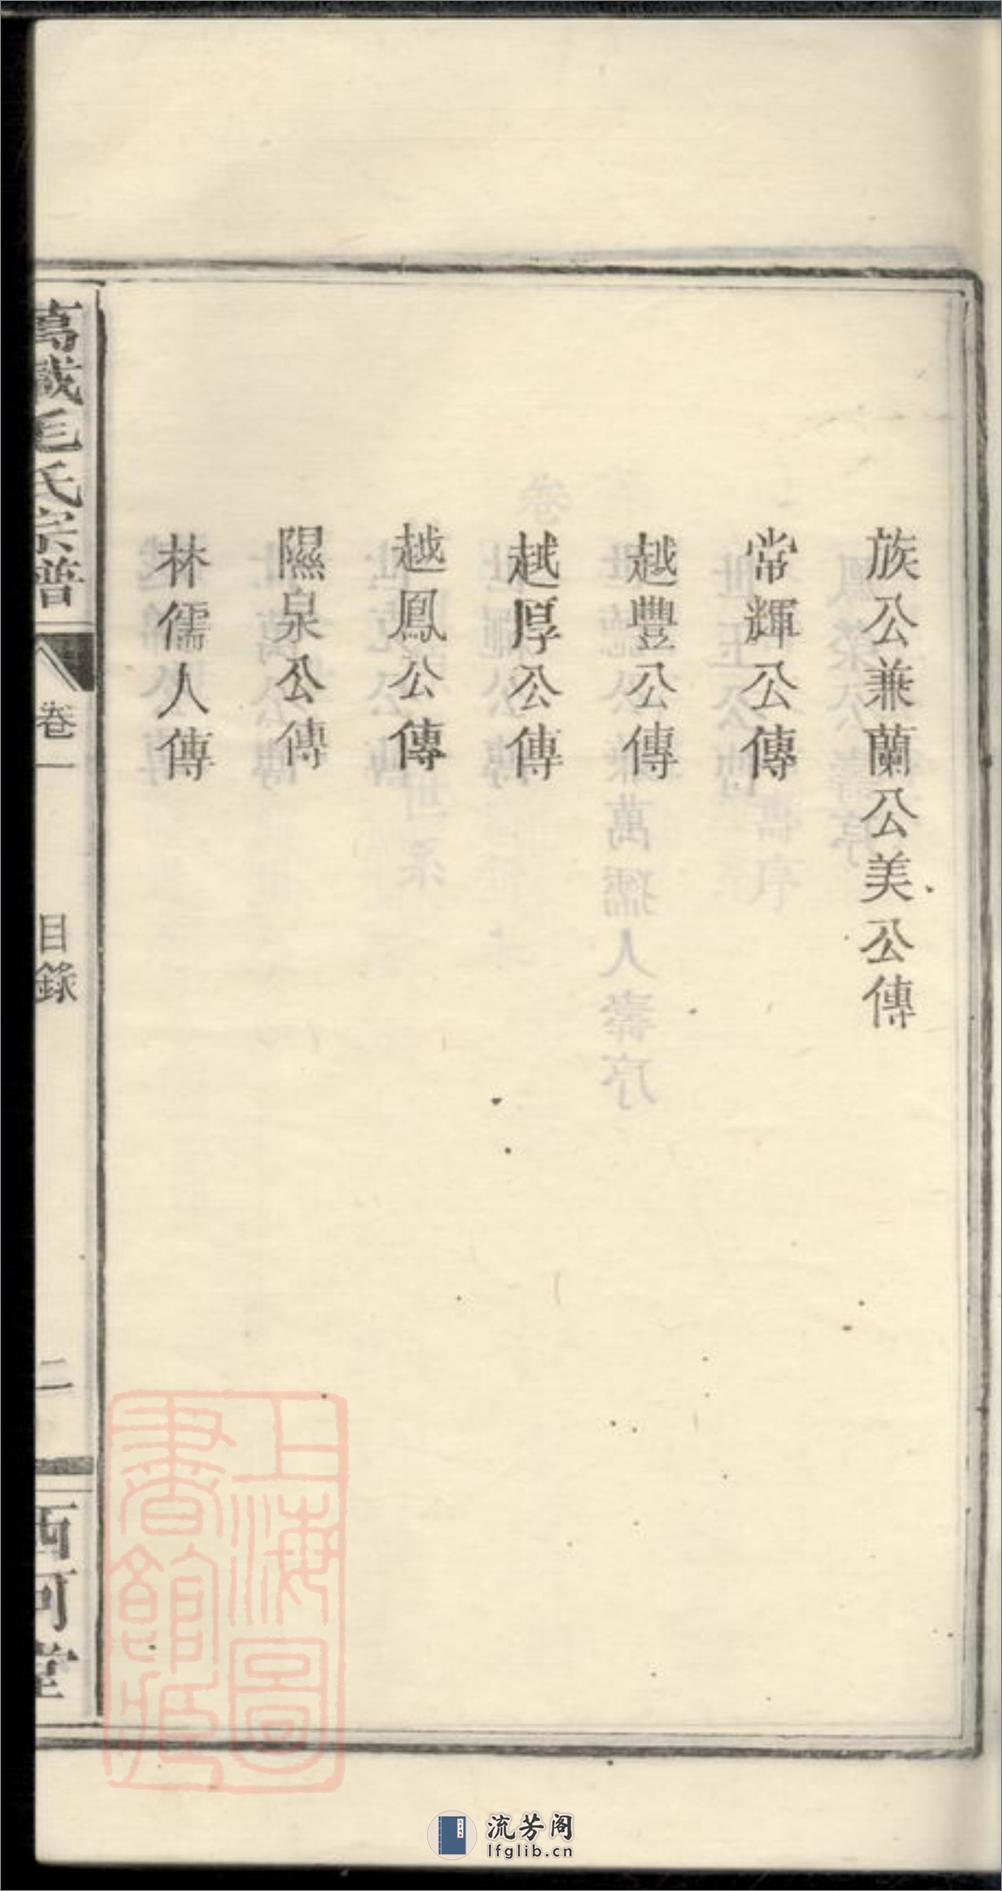 族公兼蘭公美公傳
常輝公傳
越豐公傳
越厚公傳
越鳳公傳
隰泉公傳
林儒人傳
萬載毛氏宗譜
卷一
目錄
二
西河堂
上海圖
書館藏
流芳阁
lfglib.cn